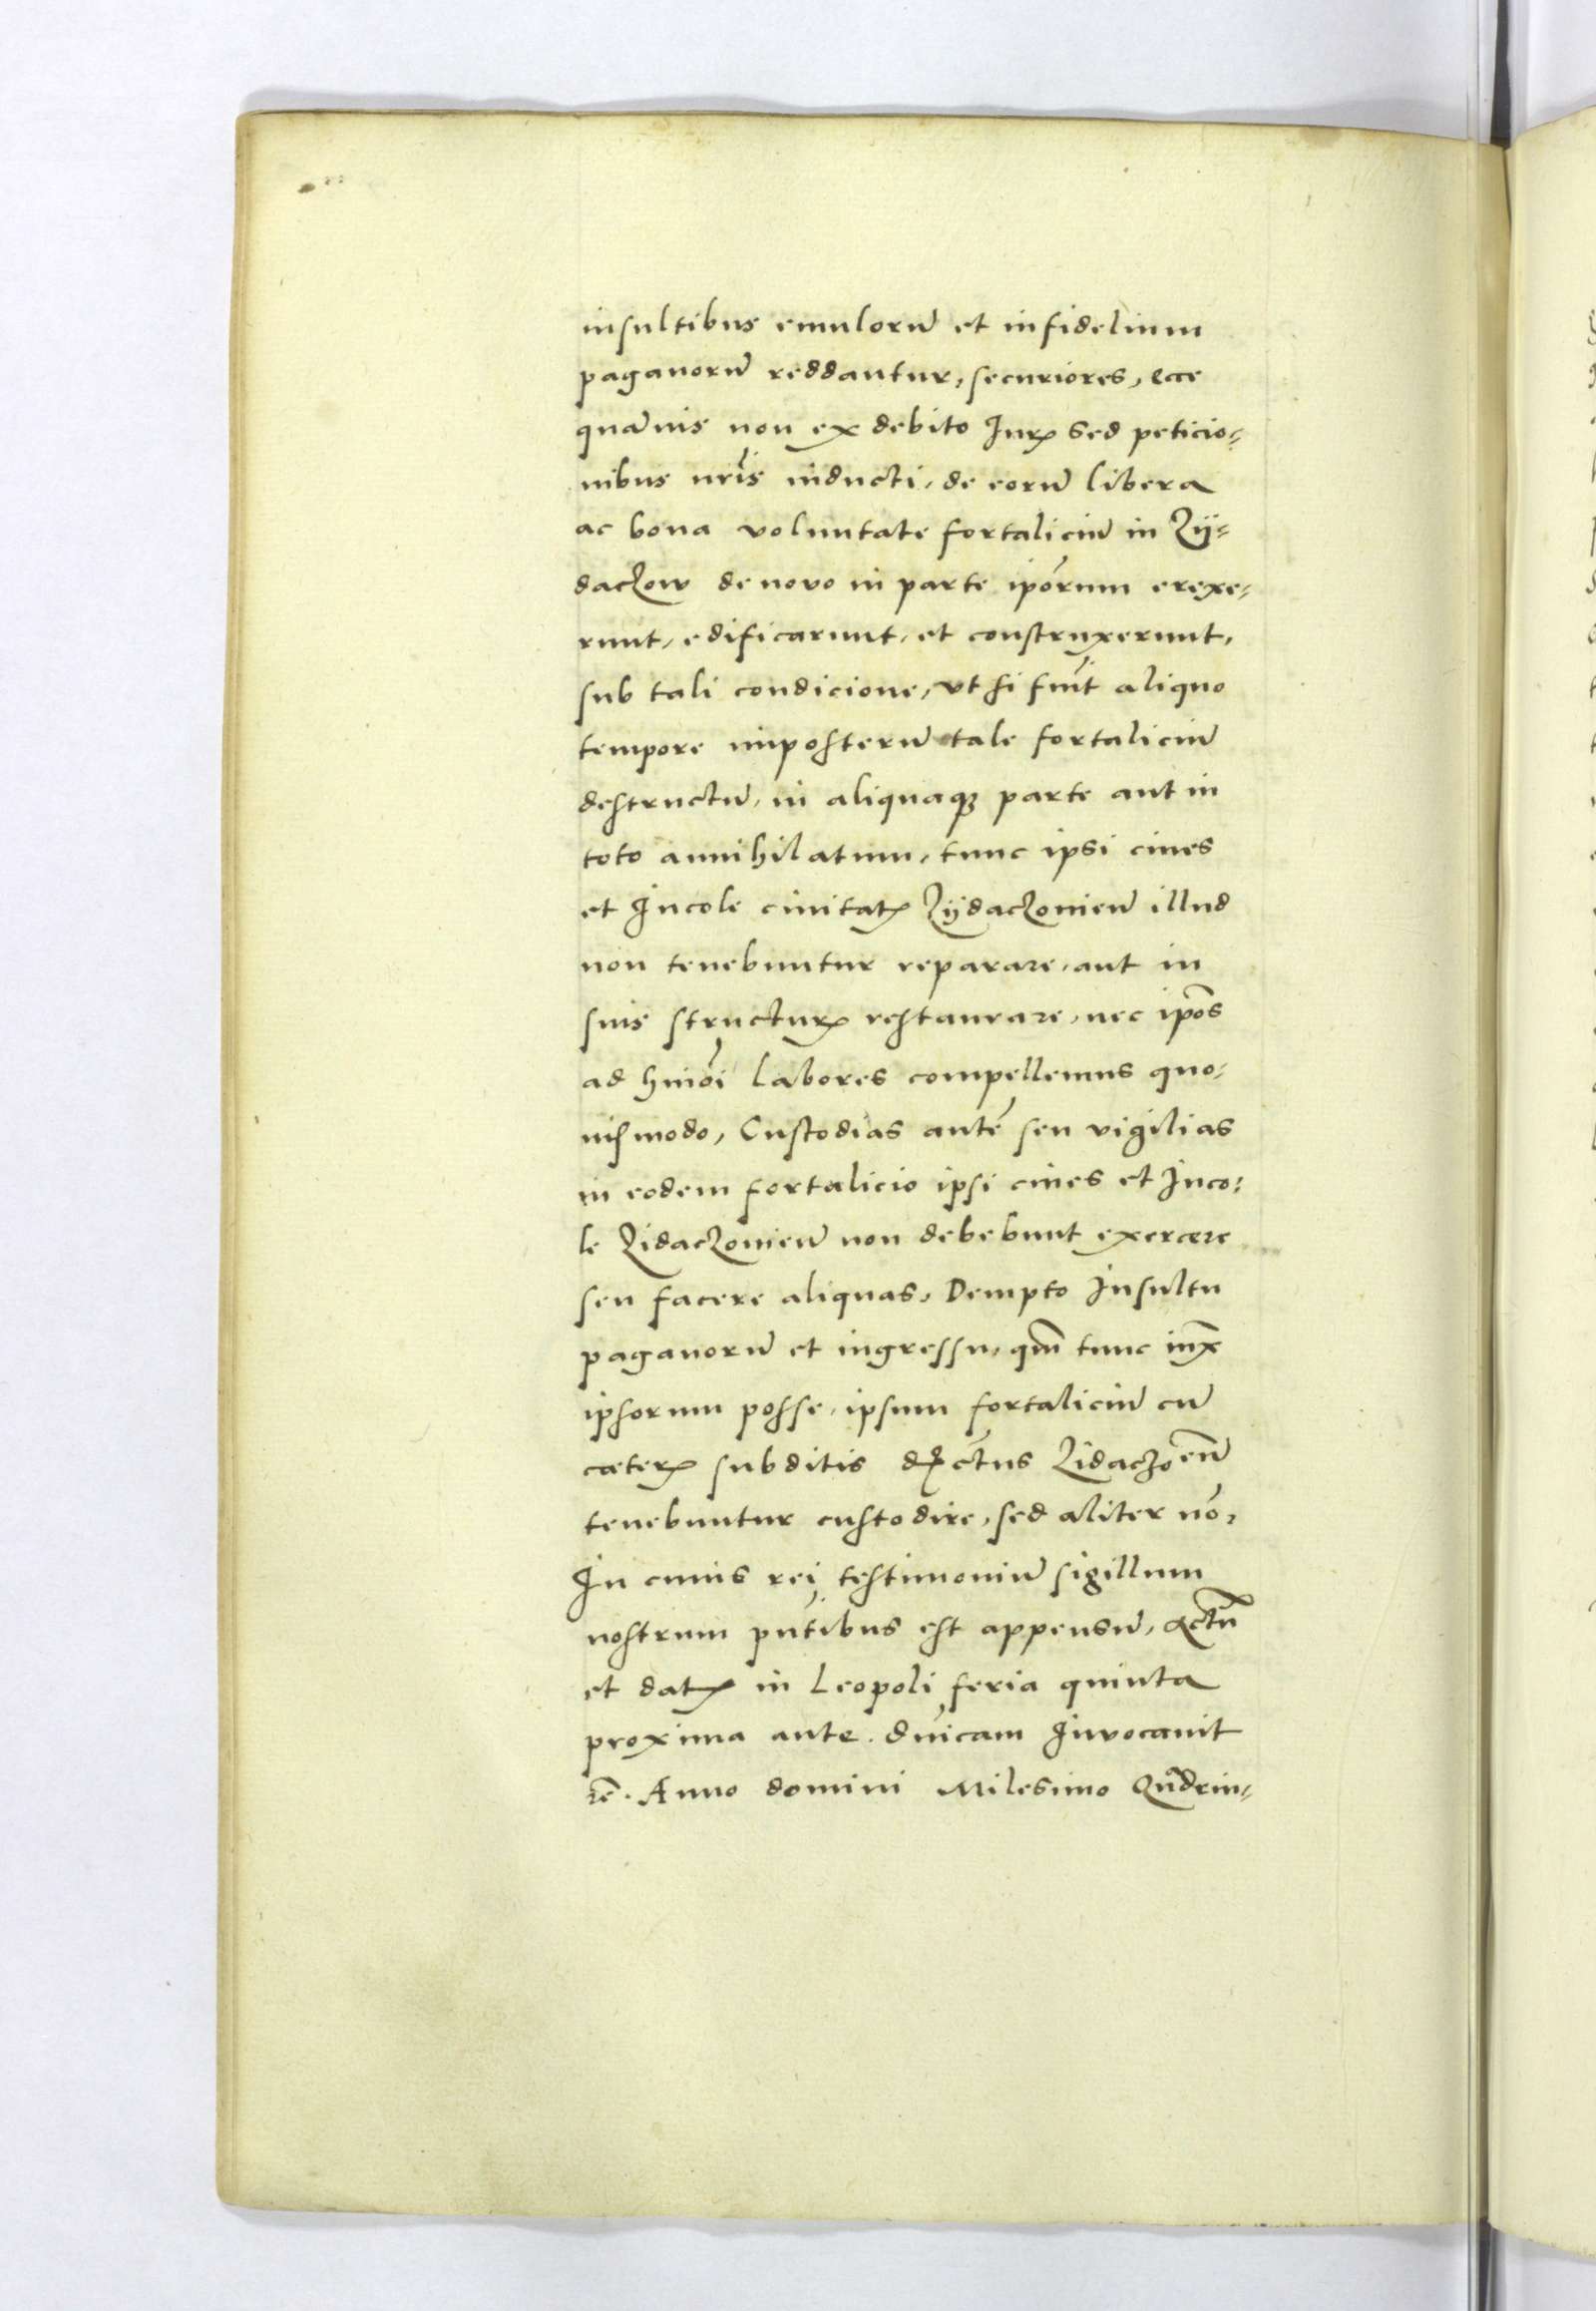 insultibus emulorū et infidelium
paganorū reddantur, securiores, ecce
quāuis non ex debito Iurꝭ sed peticio-
nibus nr̄is inducti, de eorū libera
ac bona voluntate fortaliciū in Zÿ-
daczow de nouo in parte ip̄orum erexe-
runt, edificarunt, et construxerunt,
sub tali condicione, vt si fuīt aliquo
tempore imposterū tale fortaliciū
destructū, in aliquaqꝫ parte aut in
toto annihilatum, tunc ipsi ciues
et Incole ciuitatꝭ Zÿdaczouien̄ illud
non tenebuntur reparare, aut in
suis structurꝭ restaurare, nec ip̄os
ad hmōi labores compellemus quo-
uismodo, Custodias autē seu vigilias
in eodem fortalicio ipsi ciues et Inco-
le Zidaczouien̄ non debebunt exercere
seu facere aliquas, Dempto Insultu
paganorū et ingressu, qm̄ tunc iux̄
ipsorum posse, ipsum fortaliciū cū
ceterꝭ subditis dꝭctus Zidaczoen̄
tenebuntur custodire, sed aliter nō,
In cuius rei testimoniū sigillum
nostrum pn̄tibus est appensū, Actū
et datꝭ in Leopoli feria quinta
proxima ante dn̄icam Inuocauit
rē. Anno domini Milesimo Qūdrin-